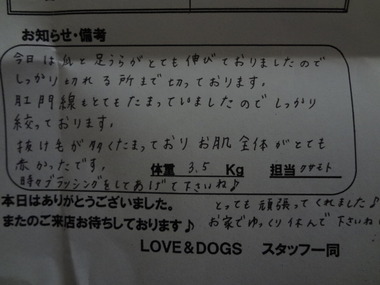 お知らせ・備考
今日は爪と足うらがとても伸びておりましたので
しっかり切れる所まで切っております。
肛門線もとてもたまっていましたのでしっかり
絞っております。
抜け毛が多くたまっており お肌全体がとても
赤かったです。 体重 3.5 Kg 担当 クサモト
時々ブラッシングをしてあげて下さいね♪
本日はありがとうございました。 とっても頑張ってくれました♪
またのご来店お待ちしております♪ お家でゆっくり休んで下さいね
LOVE&DOGS スタッフ一同